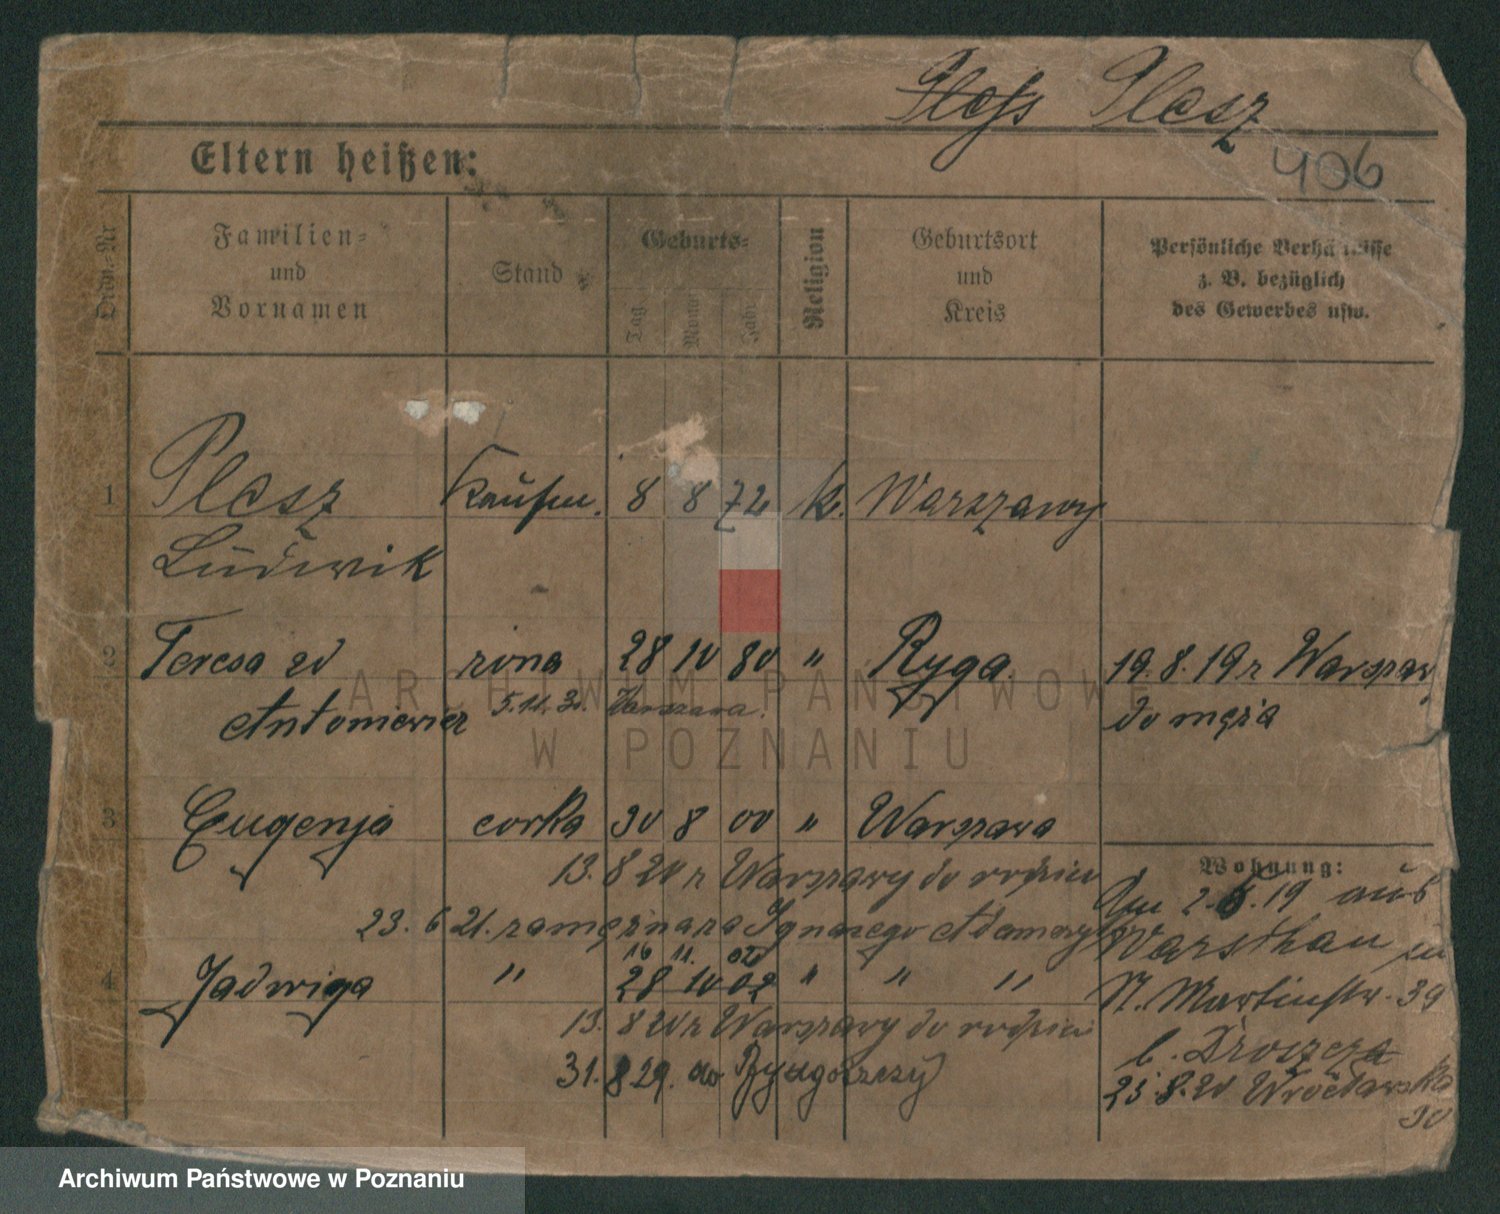 Pless Plesz
406
Eltern heißen:
Ordn.-Nr
Familien-
und
Vornamen
Stand
Geburts-
Tag
Mon
Jahr
Religion
Geburtsort
und
Kreis
Persönliche Verhältnisse
z. B. bezüglich
des Gewerbes usw.
1 Plesz Kaufm. 8 8 72 k. Warszawy
Ludwik
2 Teresa zd żona 28 10 80 " Ryga. 19.8.19 z Warszaw
Antoniewicz 5.11.31. Warszawa. do męża
3 Eugenja corka 30 8 00 " Warszawa
13. 8 20 z Warszawy do rodziców
23. 6 21. zamężna za Ignacego Adamczyka
16 11. 02
4 Jadwiga " 28 10 02 " " "
13. 8 20 z Warszawy do rodziców
31. 8 29. do Bydgoszczy
Wohnung:
2.6.19 aus
Warschau in
St. Martinstr. 39
b. Droszcza
25.8.20 Wrocławska
30
ARCHIWUM PAŃSTWOWE
W POZNANIU
Archiwum Państwowe w Poznaniu